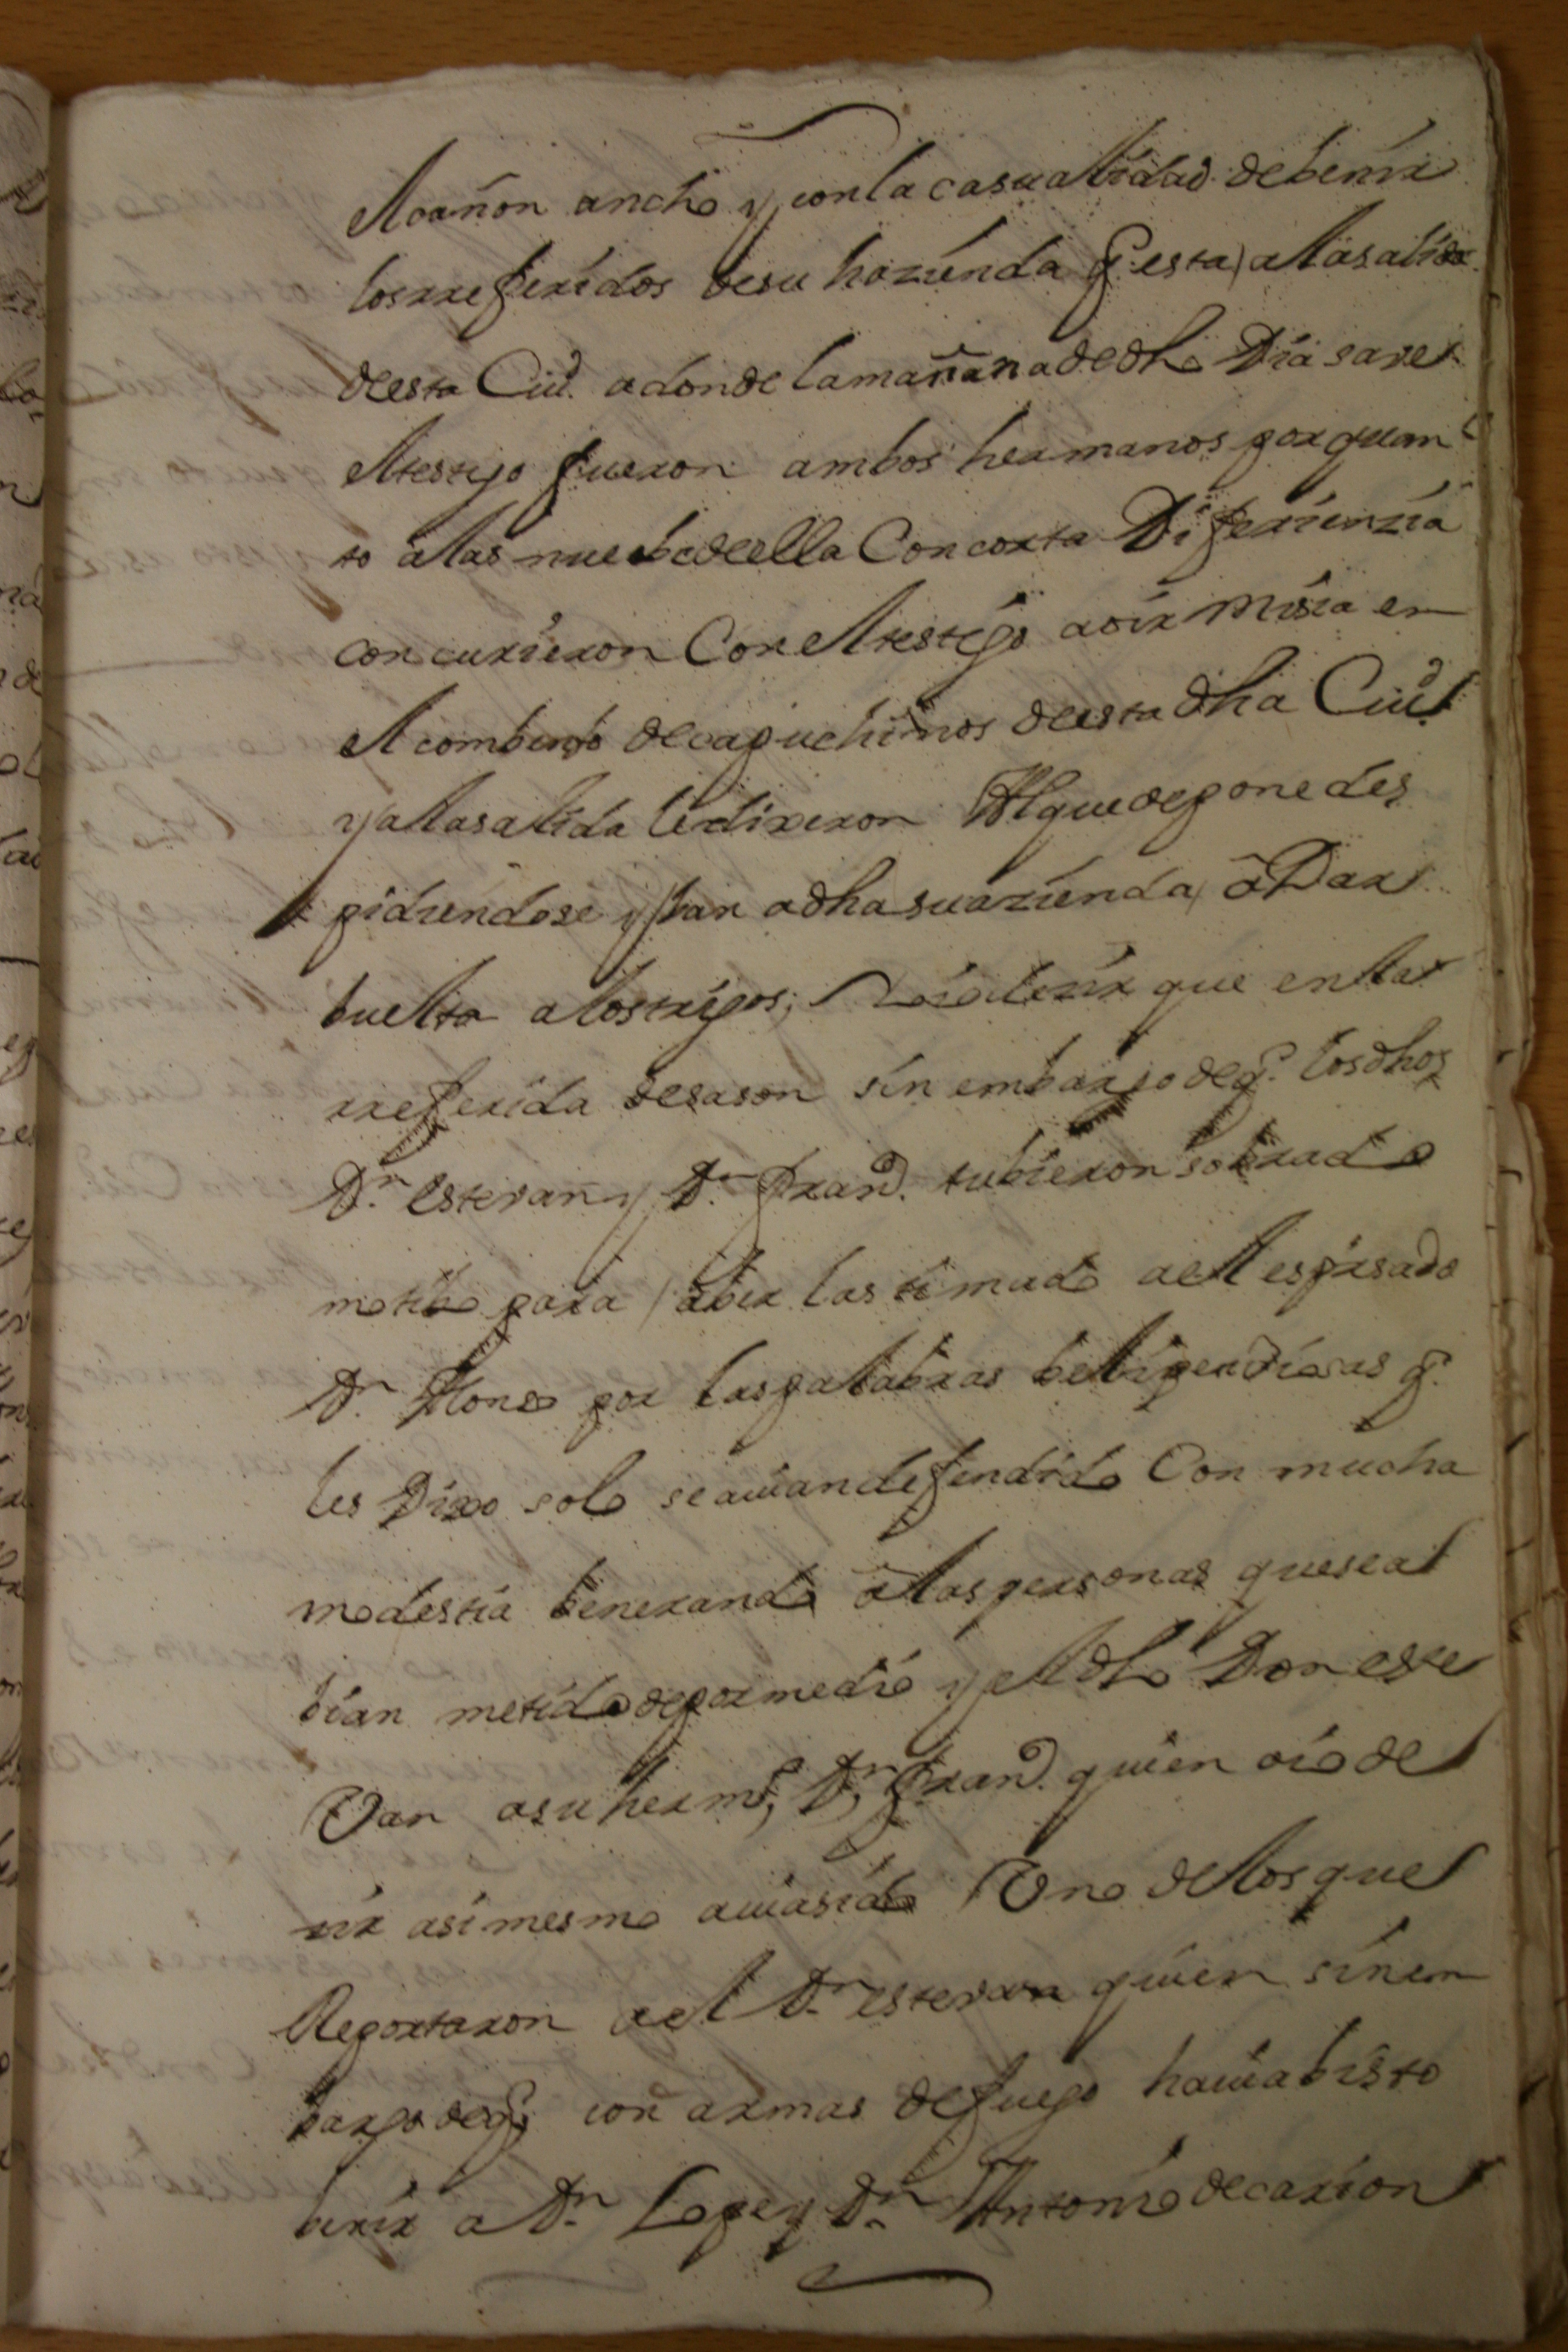 el cañon ancho y con la casualidad de benir
los rreferidos de su hazienda q.e esta a la salida
de esta Ciud. adonde la mañana de dho Dia save
el testigo fueron ambos hermanos por quan
to a las nuebe de ella Con corta Diferienzia
concurieron Con el testigo a oir misia en
el combento de capuchinos de esta dha Ciud.
y a la salida le dixeron Al que depone des
pidiendose yban a dha su azienda, a Dar
buelta a los trigos; oio dezir que en la
rreferida desason sin embargo de q.e los dhos
Dn. Estevan y Dn. Fran.co tubieron sobrado
motibo para aber lastimado a el espresado
Dn. Alonso por las palabras belipendiosas q.e
les Dixo solo se avian defendido Con mucha
modestia benerando a las personas que se a
bian metido de por medio y el dho Don este
Van a su herm.o, Dn. Fran.co quien oio de
zir asi mesmo avia sido Uno de los que
Reportaron a el Dn. estevan quien sin em
bargo de q.e con armas de fuego havia bisto
benir a Dn. Lope y Dn. Antonio de carion